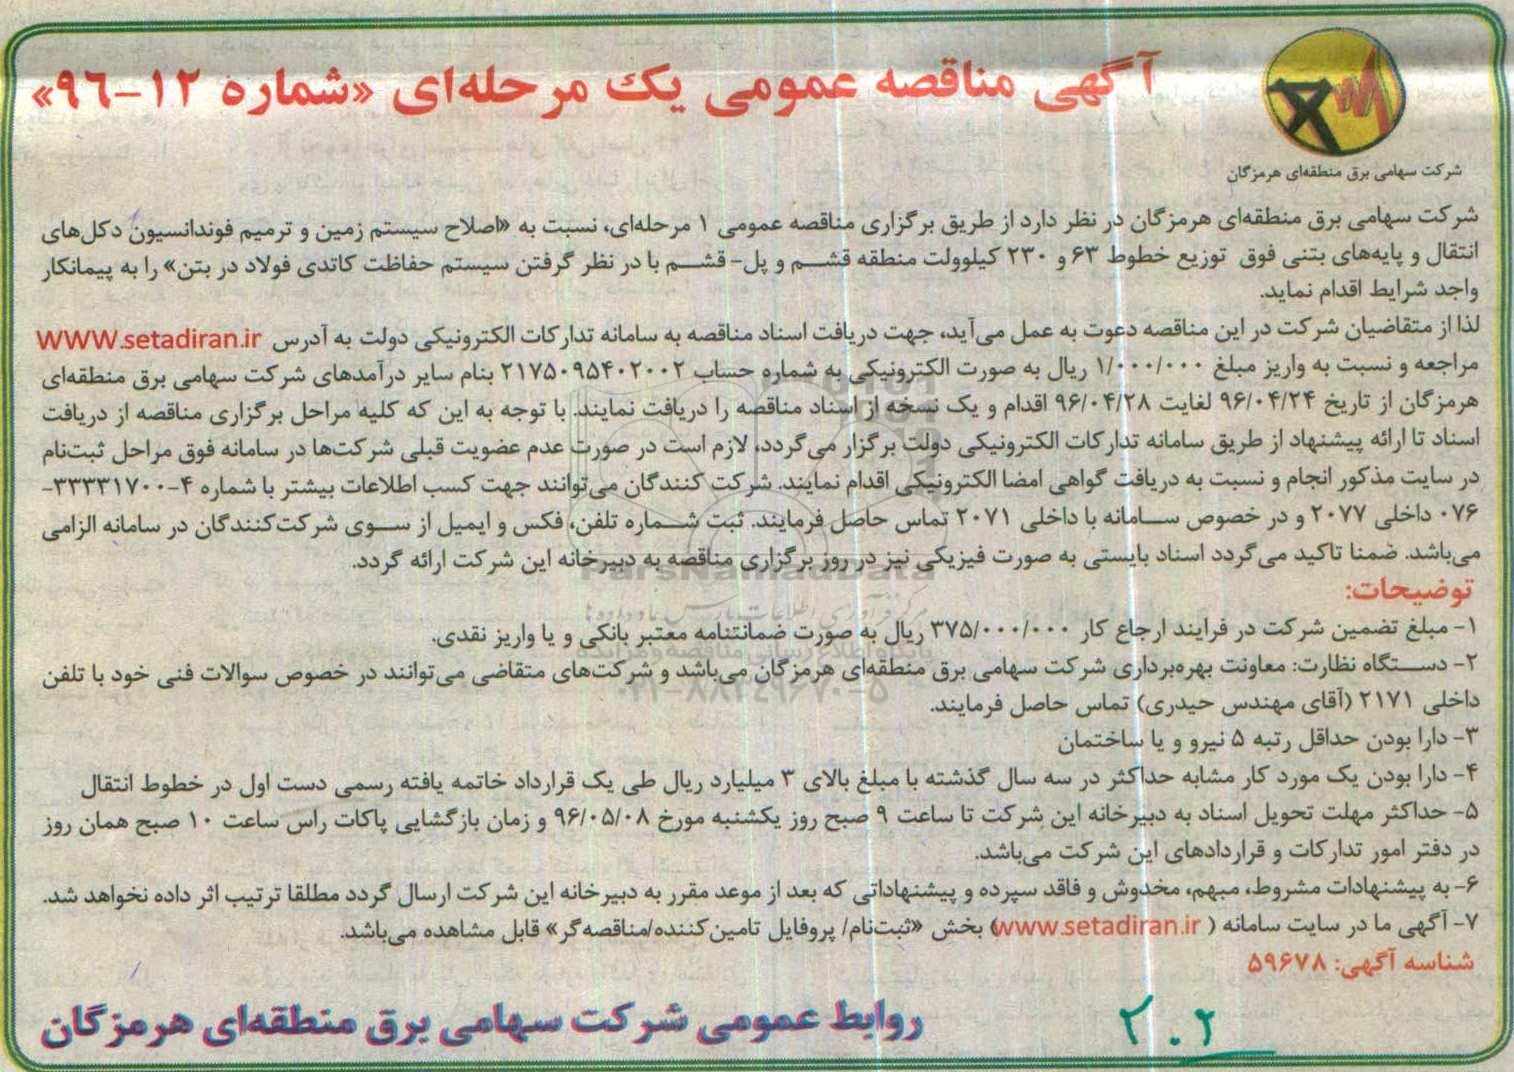 آگهی مناقصه عمومی یک مرحله‌ای «شماره ۱۲-۹۶»
شرکت سهامی برق منطقه‌ای هرمزگان
شرکت سهامی برق منطقه‌ای هرمزگان در نظر دارد از طریق برگزاری مناقصه عمومی ۱ مرحله‌ای، نسبت به «اصلاح سیستم زمین و ترمیم فوندانسیون دکل‌های
انتقال و پایه‌های بتنی فوق توزیع خطوط ۶۳ و ۲۳۰ کیلوولت منطقه قشم و پل- قشم با در نظر گرفتن سیستم حفاظت کاتدی فولاد در بتن» را به پیمانکار
واجد شرایط اقدام نماید.
لذا از متقاضیان شرکت در این مناقصه دعوت به عمل می‌آید، جهت دریافت اسناد مناقصه به سامانه تدارکات الکترونیکی دولت به آدرس WWW.setadiran.ir
مراجعه و نسبت به واریز مبلغ ۱/۰۰۰/۰۰۰ ریال به صورت الکترونیکی به شماره حساب ۲۱۷۵۰۹۵۴۰۲۰۰۲ بنام سایر درآمدهای شرکت سهامی برق منطقه‌ای
هرمزگان از تاریخ ۹۶/۰۴/۲۴ لغایت ۹۶/۰۴/۲۸ اقدام و یک نسخه از اسناد مناقصه را دریافت نمایند. با توجه به این که کلیه مراحل برگزاری مناقصه از دریافت
اسناد تا ارائه پیشنهاد از طریق سامانه تدارکات الکترونیکی دولت برگزار می‌گردد، لازم است در صورت عدم عضویت قبلی شرکت‌ها در سامانه فوق مراحل ثبت‌نام
در سایت مذکور انجام و نسبت به دریافت گواهی امضا الکترونیکی اقدام نمایند. شرکت کنندگان می‌توانند جهت کسب اطلاعات بیشتر با شماره ۴-۳۳۳۳۱۷۰۰-
۰۷۶ داخلی ۲۰۷۷ و در خصوص سامانه با داخلی ۲۰۷۱ تماس حاصل فرمایند. ثبت شماره تلفن، فکس و ایمیل از سوی شرکت‌کنندگان در سامانه الزامی
می‌باشد. ضمنا تاکید می‌گردد اسناد بایستی به صورت فیزیکی نیز در روز برگزاری مناقصه به دبیرخانه این شرکت ارائه گردد.
ParsNamadData
مرکز فرآوری اطلاعات پارس نماد داده‌ها
پایگاه اطلاع رسانی مناقصه و مزایده
۰۲۱-۸۸۳۴۹۶۷۰-۵
توضیحات:
۱- مبلغ تضمین شرکت در فرایند ارجاع کار ۳۷۵/۰۰۰/۰۰۰ ریال به صورت ضمانتنامه معتبر بانکی و یا واریز نقدی.
۲- دستگاه نظارت: معاونت بهره‌برداری شرکت سهامی برق منطقه‌ای هرمزگان می‌باشد و شرکت‌های متقاضی می‌توانند در خصوص سوالات فنی خود با تلفن
داخلی ۲۱۷۱ (آقای مهندس حیدری) تماس حاصل فرمایند.
۳- دارا بودن حداقل رتبه ۵ نیرو و یا ساختمان
۴- دارا بودن یک مورد کار مشابه حداکثر در سه سال گذشته با مبلغ بالای ۳ میلیارد ریال طی یک قرارداد خاتمه یافته رسمی دست اول در خطوط انتقال
۵- حداکثر مهلت تحویل اسناد به دبیرخانه این شرکت تا ساعت ۹ صبح روز یکشنبه مورخ ۹۶/۰۵/۰۸ و زمان بازگشایی پاکات راس ساعت ۱۰ صبح همان روز
در دفتر امور تدارکات و قراردادهای این شرکت می‌باشد.
۶- به پیشنهادات مشروط، مبهم، مخدوش و فاقد سپرده و پیشنهاداتی که بعد از موعد مقرر به دبیرخانه این شرکت ارسال گردد مطلقا ترتیب اثر داده نخواهد شد.
۷- آگهی ما در سایت سامانه ( www.setadiran.ir) بخش «ثبت‌نام/ پروفایل تامین‌کننده/مناقصه‌گر» قابل مشاهده می‌باشد.
شناسه آگهی: ۵۹۶۷۸
روابط عمومی شرکت سهامی برق منطقه‌ای هرمزگان
۲۰۲